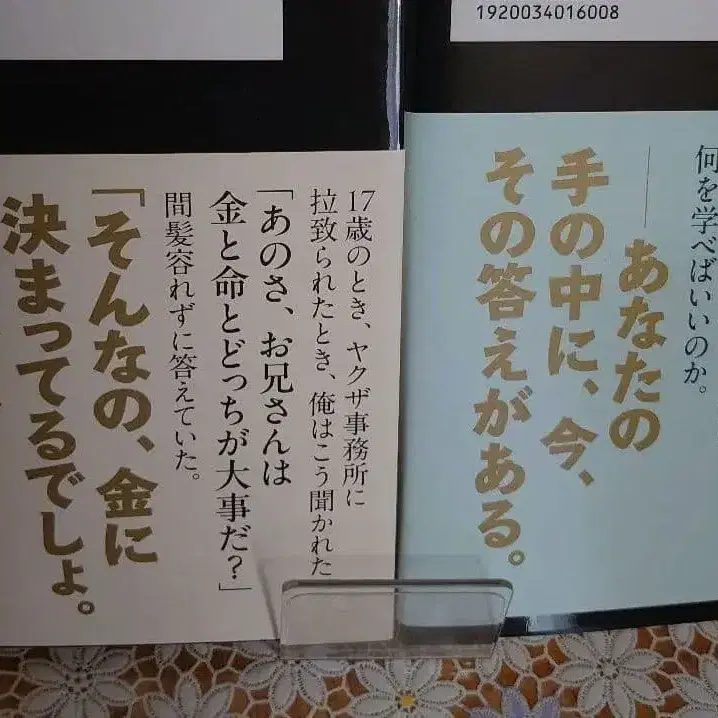 1920034016008
何を学べばいいのか。
──あなたの
手の中に、今、
その答えがある。
17歳のとき、ヤクザ事務所に
拉致られたとき、俺はこう聞かれた
「あのさ、お兄さんは
金と命とどっちが大事だ？」
間髪容れずに答えていた。
「そんなの、金に
決まってるでしょ。